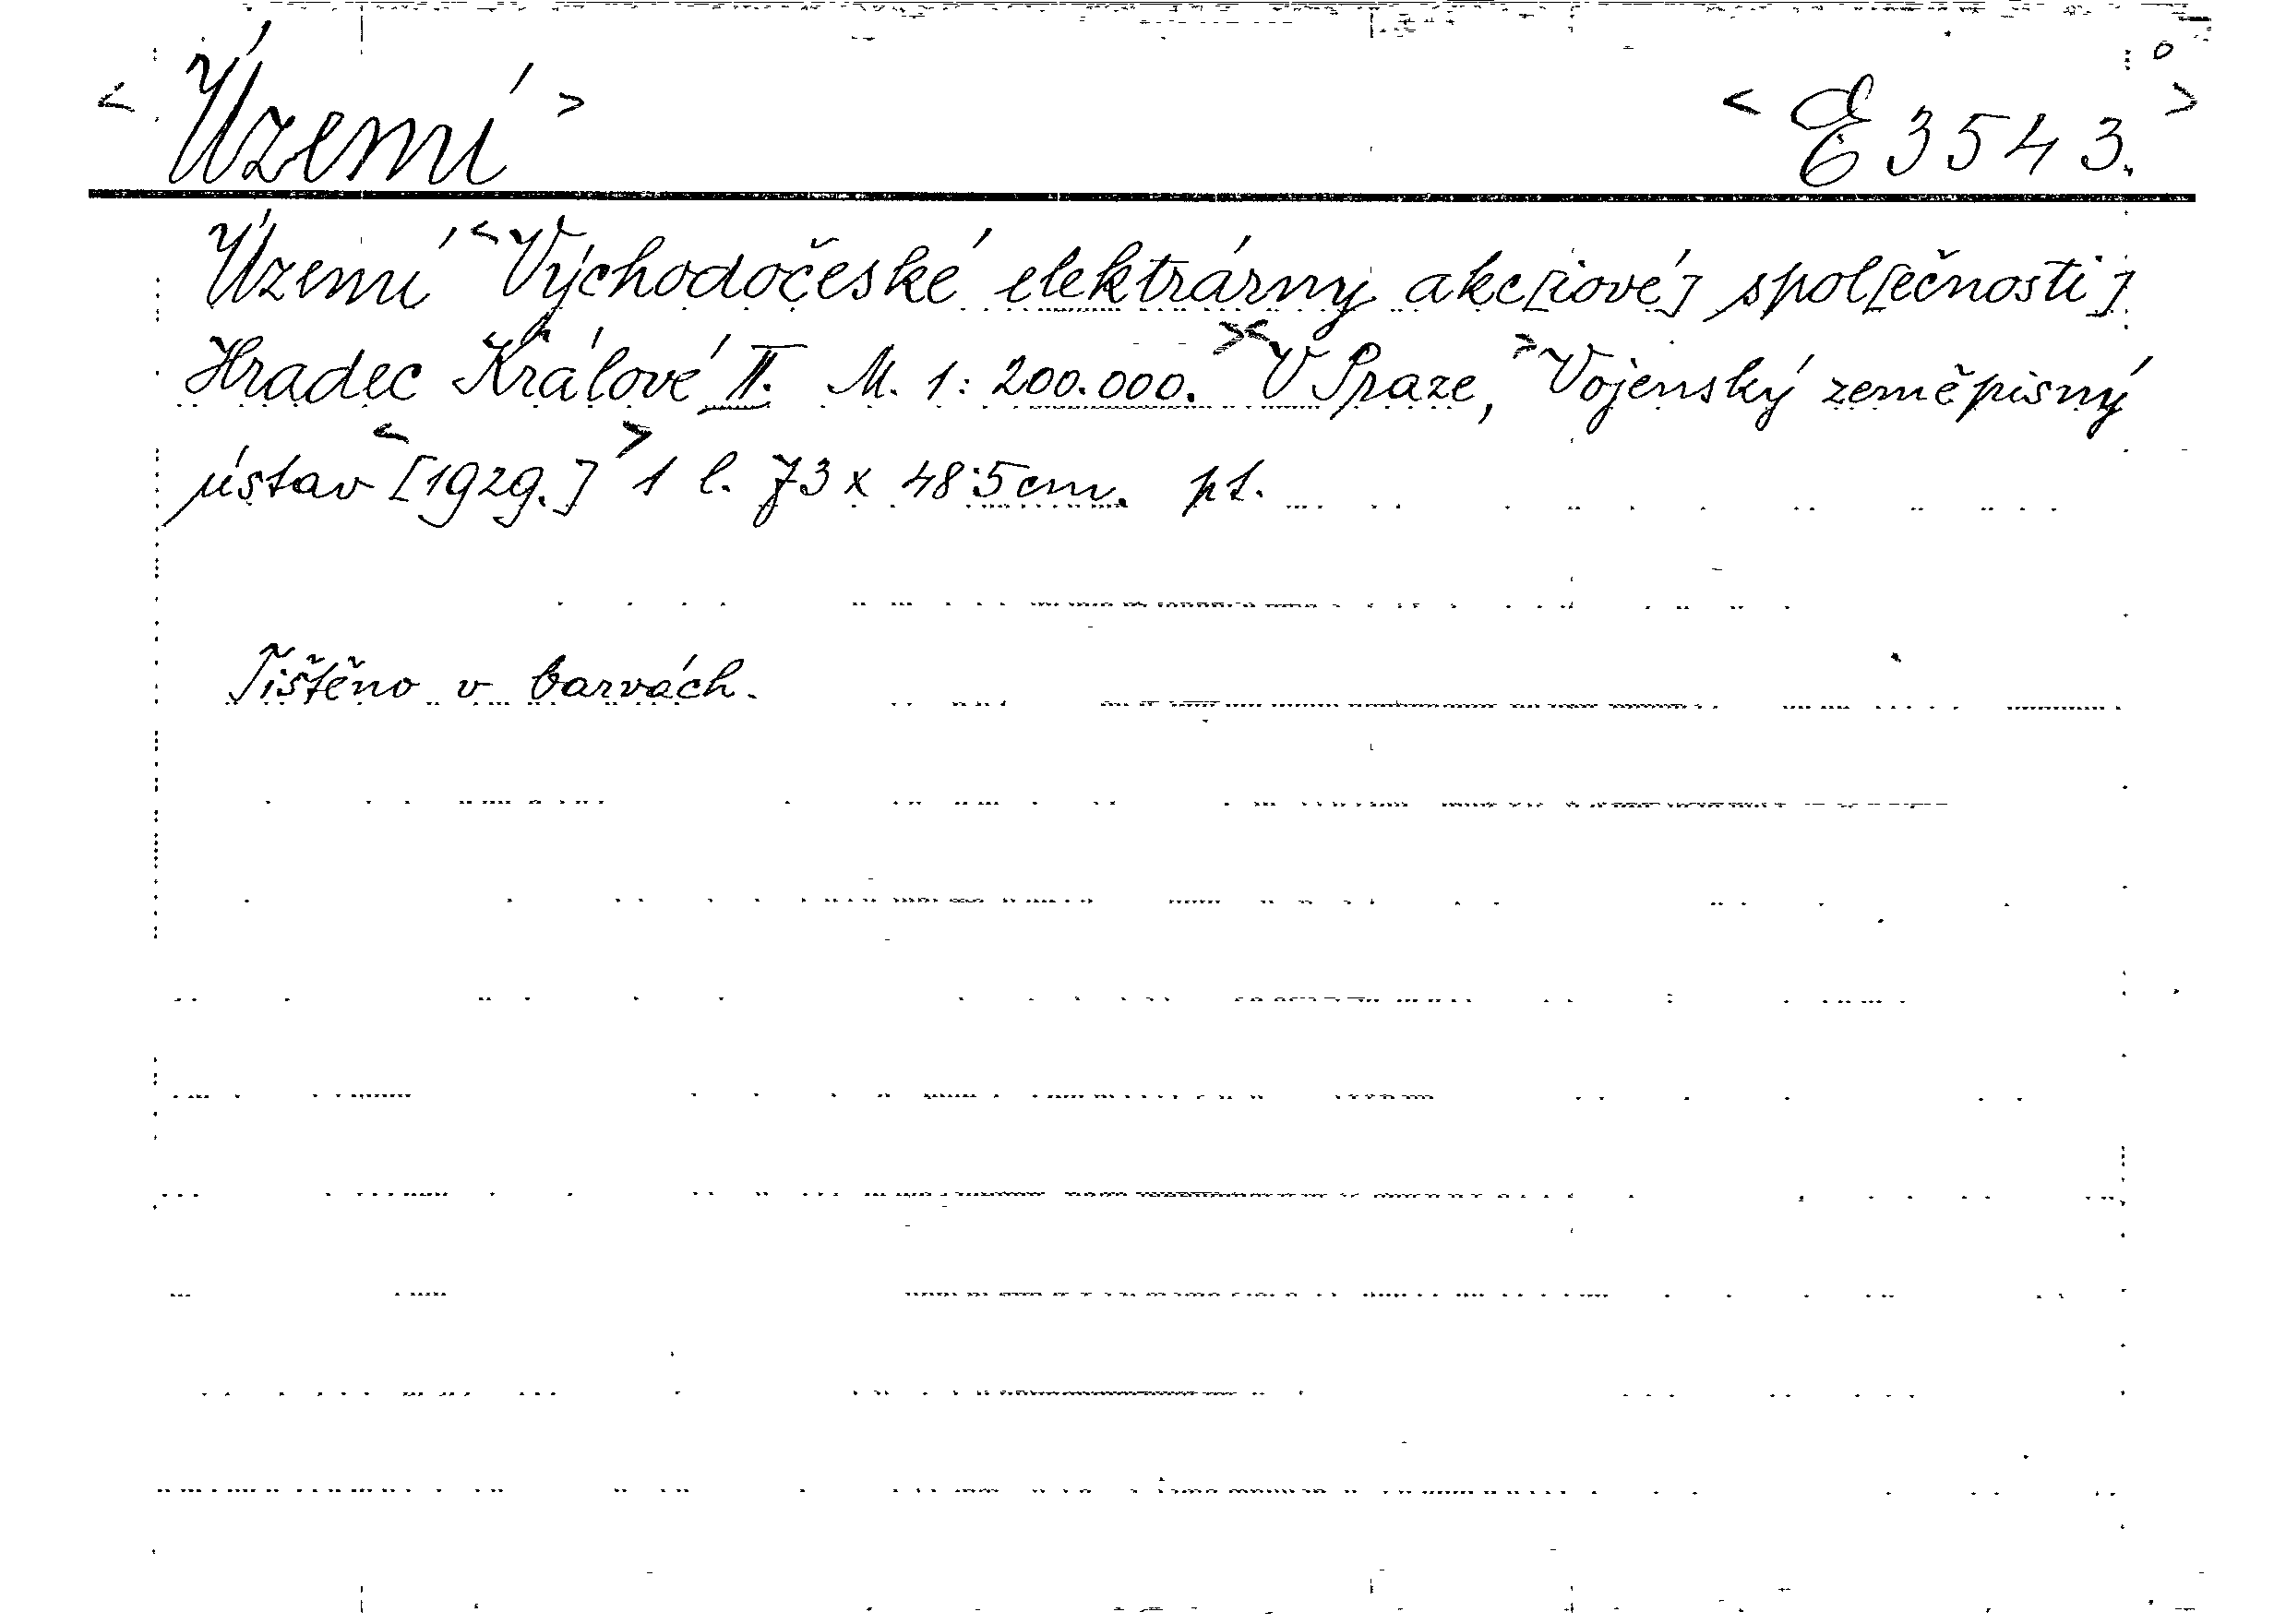 <Území> <E 3543.>
Území <Východočeské elektrárny akc[iové] spol[ečnosti]
Hradec Králové II. M. 1:200.000. >< V Praze, > Vojenský zeměpisný
ústav < [1929.] > 1 l. 73 x 48·5 cm. pt.
Tištěno v barvách.